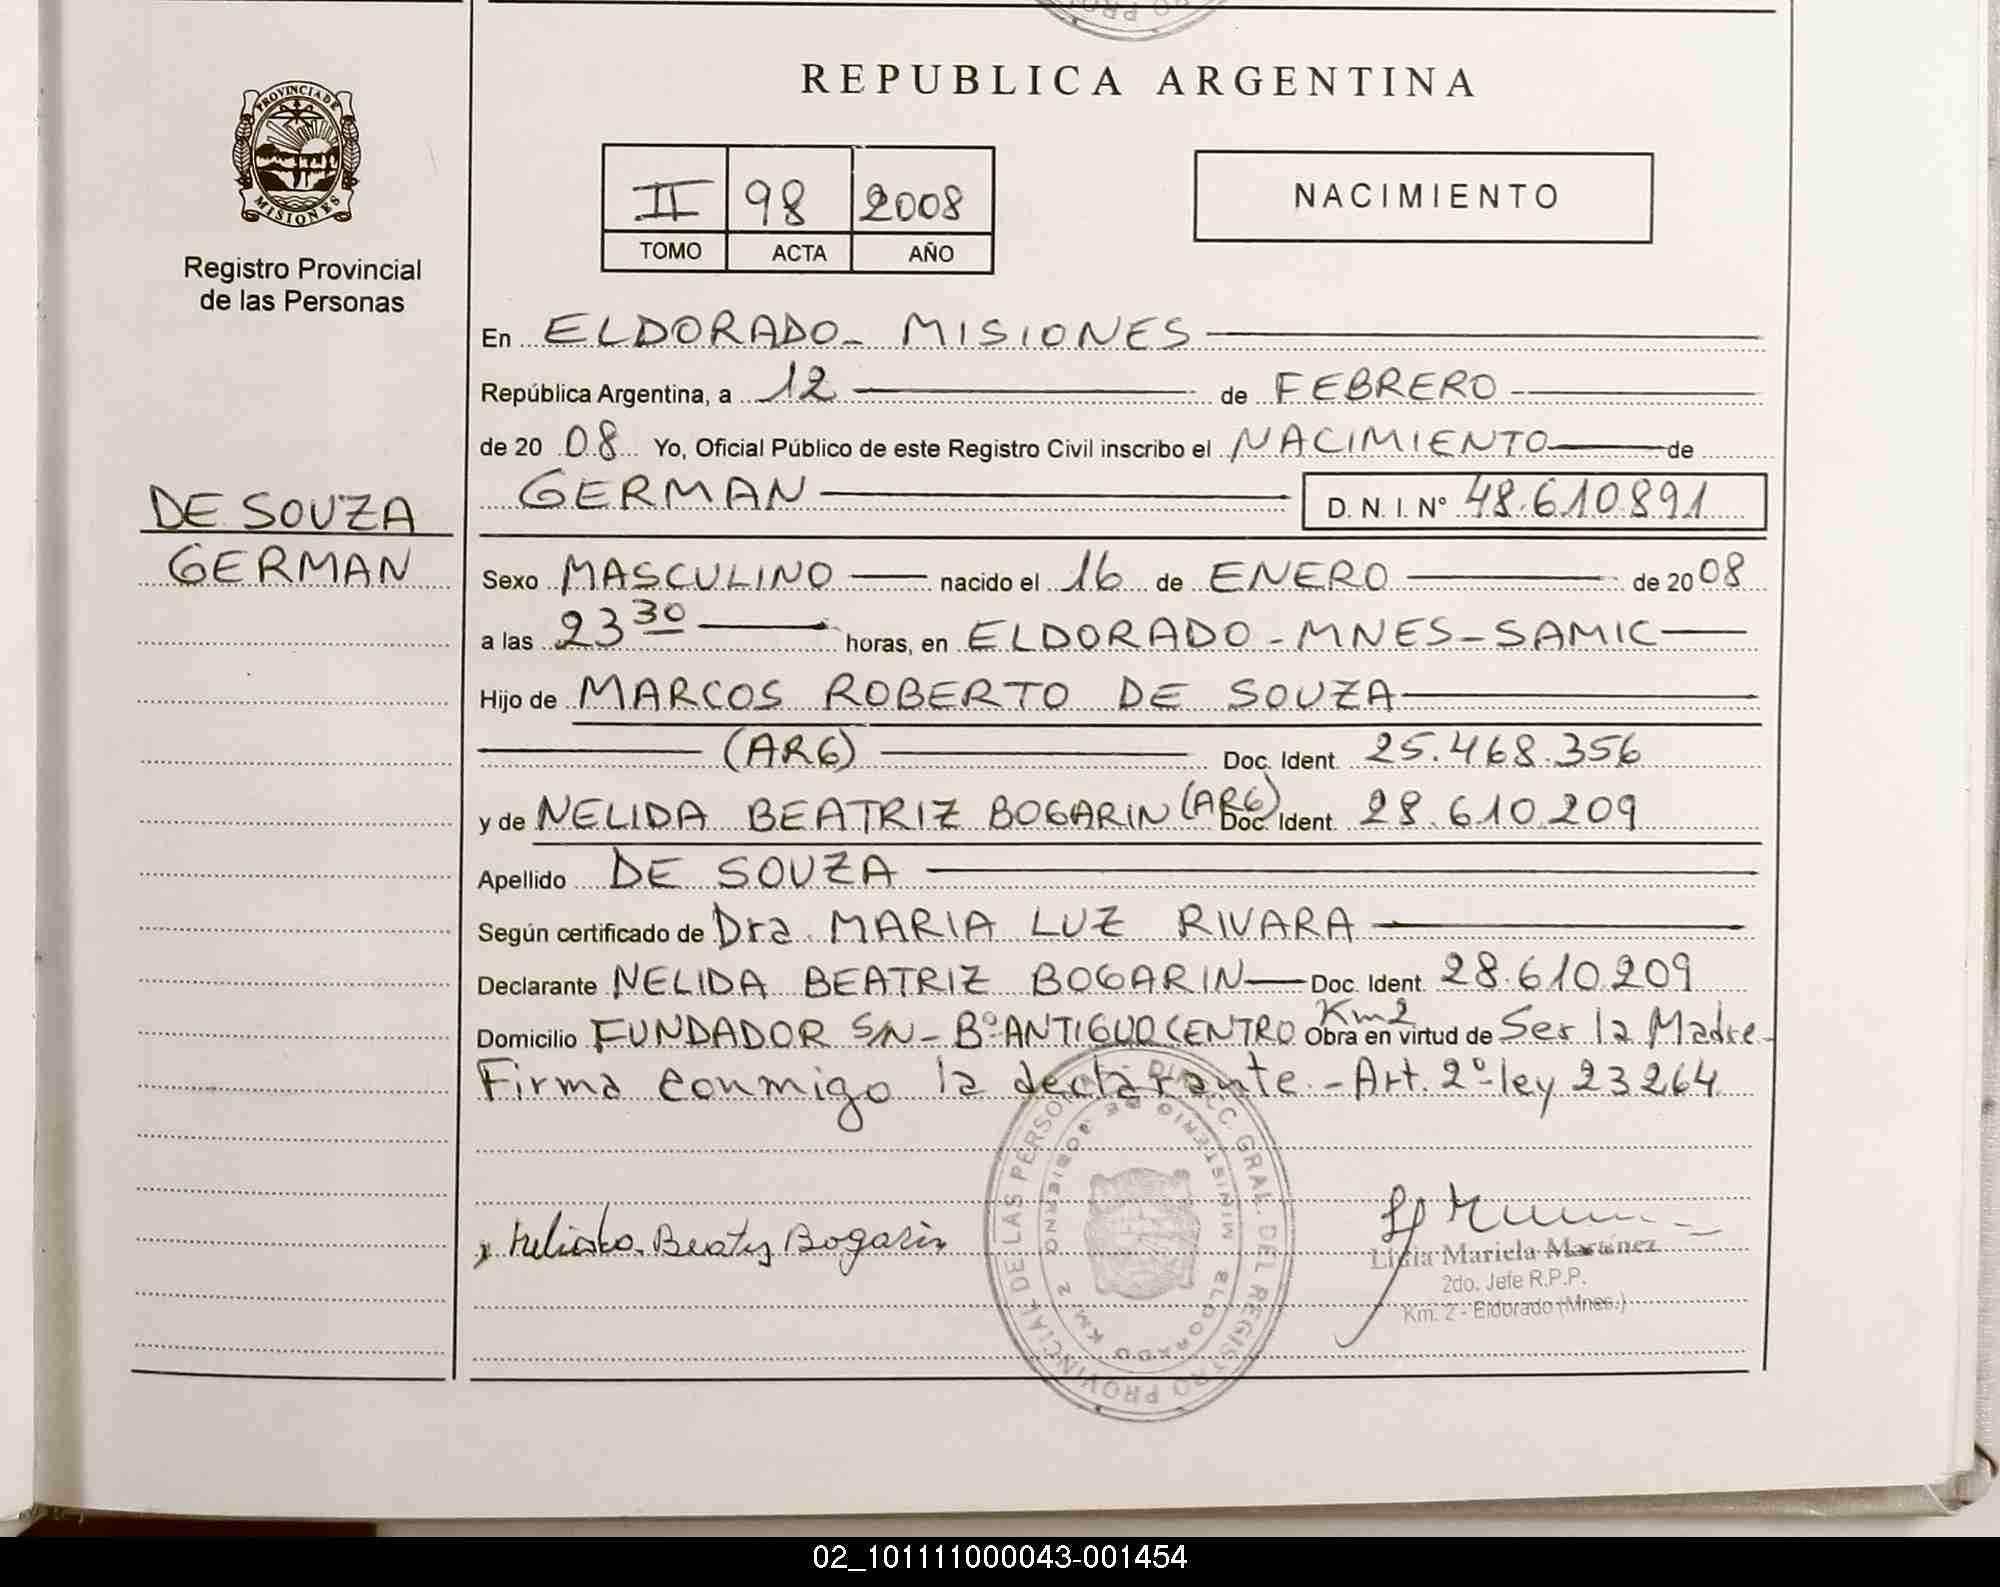 REPUBLICA ARGENTINA
PROVINCIA DE
MISIONES
Registro Provincial
de las Personas
II 98 2008
TOMO ACTA AÑO
NACIMIENTO
DE SOUZA
GERMAN
En ELDORADO - MISIONES
República Argentina, a 12 de FEBRERO
de 20 08 Yo, Oficial Público de este Registro Civil inscribo el NACIMIENTO de
GERMAN D. N. I. Nº 48.610891
Sexo MASCULINO nacido el 16 de ENERO de 20 08
a las 23 30 horas, en ELDORADO - MNES - SAMIC
Hijo de MARCOS ROBERTO DE SOUZA
(ARG) Doc. Ident. 25.468.356
y de NELIDA BEATRIZ BOGARIN (ARG) Doc. Ident. 28.610.209
Apellido DE SOUZA
Según certificado de Dra. MARIA LUZ RIVARA
Declarante NELIDA BEATRIZ BOGARIN Doc. Ident. 28.610.209
Domicilio FUNDADOR S/N - Bº ANTIGUO CENTRO Km 2 Obra en virtud de Ser la Madre -
Firma conmigo la declarante. - Art. 2º ley 23264
DIRECC. GRAL. DEL REGISTRO PROVINCIAL DE LAS PERSONAS
MINISTERIO DE GOBIERNO
ELDORADO KM. 2
x Nelida Beatriz Bogarin
Lidia Mariela Martínez
2do. Jefe R.P.P.
Km. 2 - Eldorado (Mnes.)
02_101111000043-001454